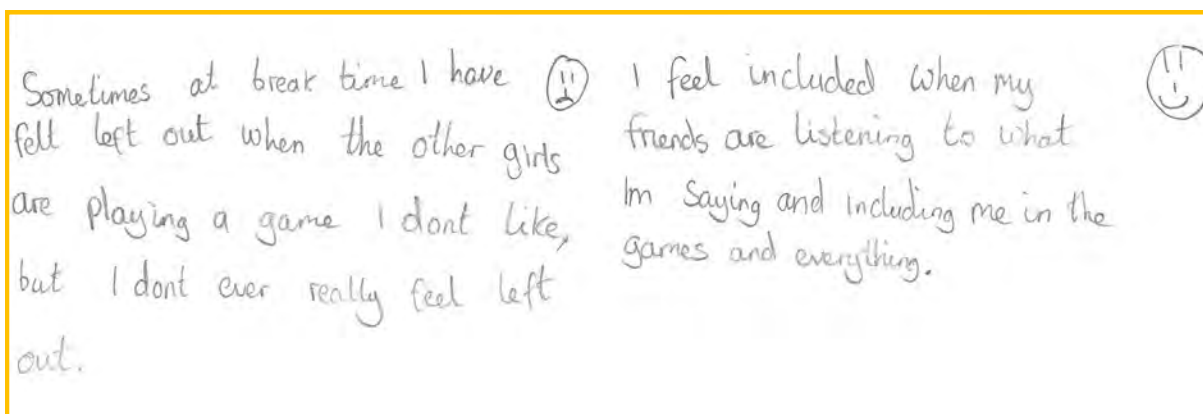 Sometimes at break time I have
felt left out when the other girls
are playing a game I dont like,
but I dont ever really feel left
out.
I feel included when my
friends are listening to what
Im saying and including me in the
games and everything.